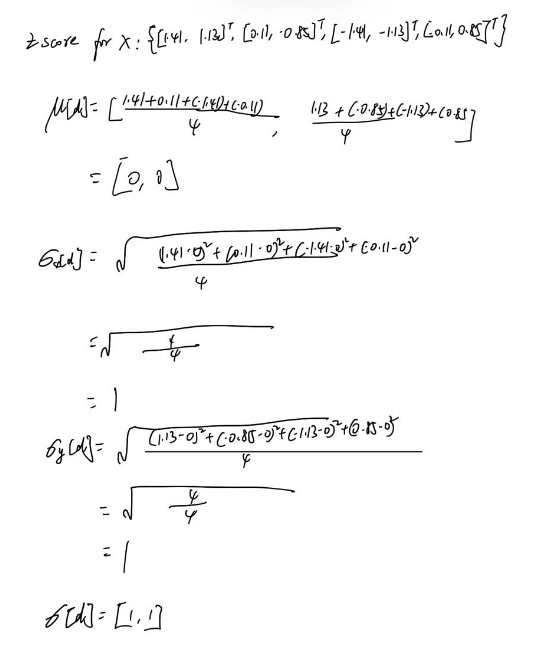 z score for X: {[1.41, 1.13]ᵀ, [0.11, -0.85]ᵀ, [-1.41, -1.13]ᵀ, [-0.11, 0.85]ᵀ}
μ[d] = [(1.41+0.11+(-1.41)+(-0.11))/4, (1.13+(-0.85)+(-1.13)+(0.85))/4]
= [0, 0]
σx[d] = √((1.41-0)²+(0.11-0)²+(-1.41-0)²+(-0.11-0)²/4)
= √(4/4)
= 1
σy[d] = √((1.13-0)²+(-0.85-0)²+(-1.13-0)²+(0.85-0)²/4)
= √(4/4)
= 1
σ[d] = [1, 1]